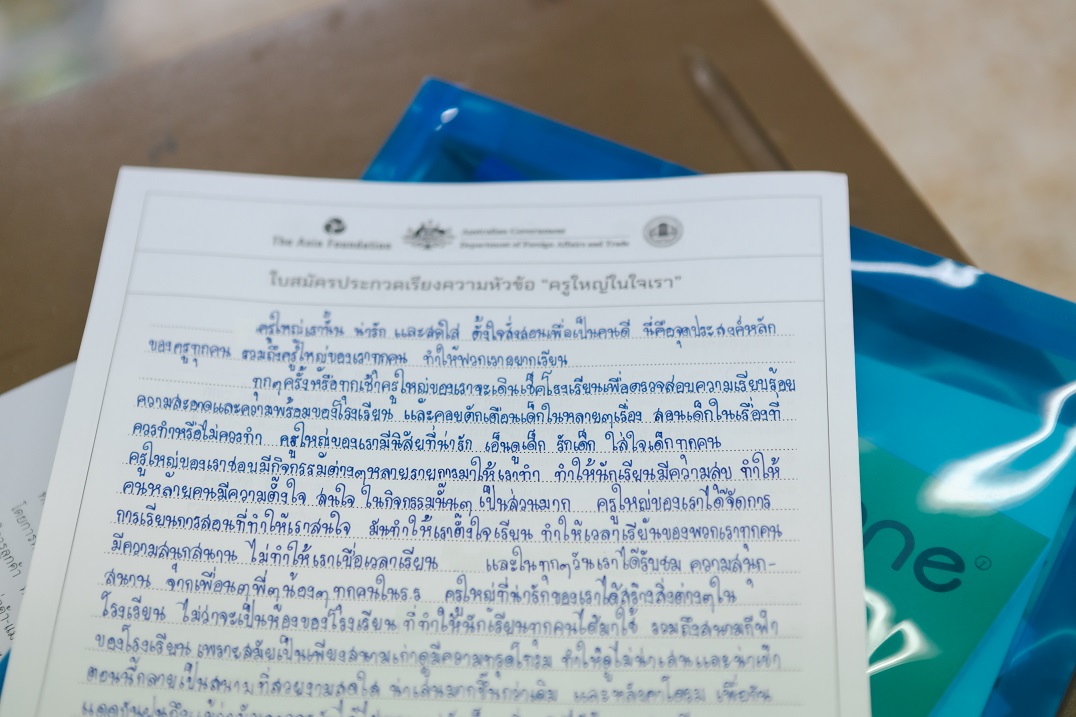 The Asia Foundation
Australian Government
Department of Foreign Affairs and Trade
ใบสมัครประกวดเรียงความหัวข้อ "ครูใหญ่ในใจเรา"
ครูใหญ่เรานั้น น่ารัก และสดใส ตั้งใจสั่งสอนเพื่อเป็นคนดี นี่คือจุดประสงค์หลัก
ของครูทุกคน รวมถึงครูใหญ่ของเราทุกคน ทำให้พวกเราอยากเรียน
ทุกๆครั้งหรือทุกเช้าครูใหญ่ของเราจะเดินเช็คโรงเรียนเพื่อตรวจสอบความเรียบร้อย
ความสะอาดและความพร้อมของโรงเรียน และคอยตักเตือนเด็กในหลายๆเรื่อง สอนเด็กในเรื่องที่
ควรทำหรือไม่ควรทำ ครูใหญ่ของเรามีนิสัยที่น่ารัก เอ็นดูเด็ก รักเด็ก ใส่ใจเด็กทุกคน
ครูใหญ่ของเราชอบมีกิจกรรมต่างๆหลายรายการมาให้เราทำ ทำให้นักเรียนมีความสุข ทำให้
คนหลายคนมีความตั้งใจ สนใจ ในกิจกรรมนั้นๆ เป็นส่วนมาก ครูใหญ่ของเราได้จัดการ
การเรียนการสอนที่ทำให้เราสนใจ มันทำให้เราตั้งใจเรียน ทำให้เวลาเรียนของพวกเราทุกคน
มีความสนุกสนาน ไม่ทำให้เราเบื่อเวลาเรียน และในทุกๆวันเราได้รับชม ความสนุก-
สนาน จากเพื่อนๆพี่ๆน้องๆ ทุกคนในร.ร ครูใหญ่ที่น่ารักของเราได้สร้างสิ่งต่างๆใน
โรงเรียน ไม่ว่าจะเป็นห้องของโรงเรียน ที่ทำให้นักเรียนทุกคนได้มาใช้ รวมถึงสนามกีฬา
ของโรงเรียน เพราะสมัยเป็นเพียงสนามเก่าดูมีความทรุดโทรม ทำให้ดูไม่น่าเล่นและน่าเข้า
ตอนนี้กลายเป็นสนามที่สวยงามสดใส น่าเล่นมากขึ้นกว่าเดิม และหลังคาโดม เพื่อกัน
one